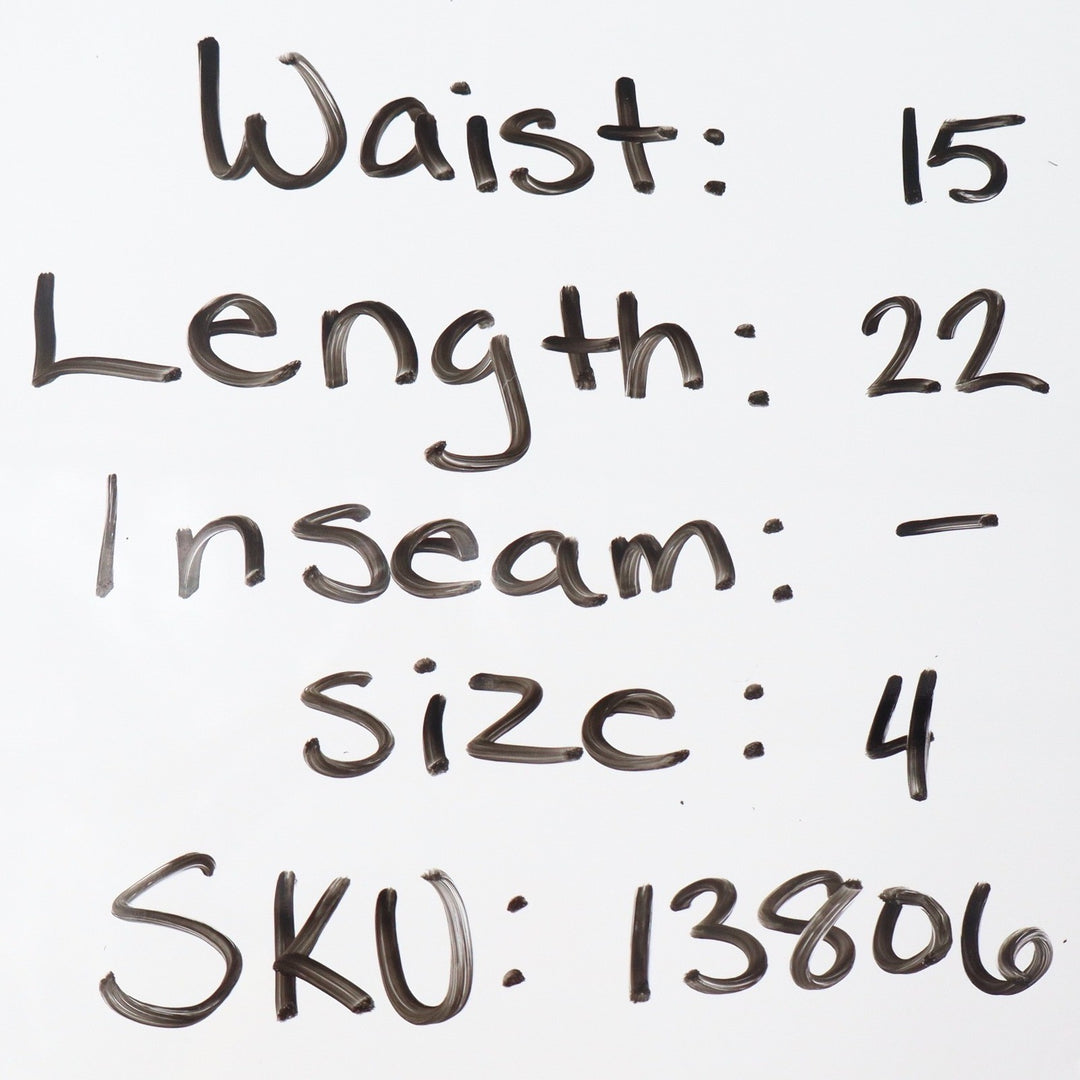 Waist: 15
Length: 22
Inseam: -
Size: 4
SKU: 13806